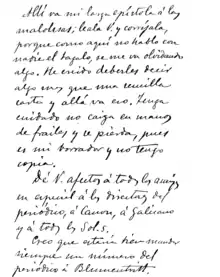 Allá va mi larga epístola á las
malolesas, leala V. y corríjala,
porque como aquí no hablo con
nadie el tagalo, se me va olvidando
algo. He creido deberles decir
algo mas que una sencilla
carta y allá va eso. Tenga
cuidado no caiga en manos
de frailes y se pierda, pues
es mi borrador y no tengo
copia.
Dé V. afectos á todos los amigos
en especial á los directores del
periódico, á Canon, á Galicano
y á todos los Sols.
Creo que estaria bien mandar
siempre un número del
periódico a Blumentritt